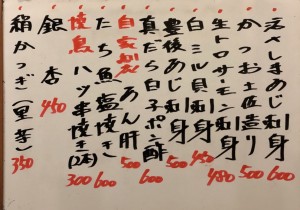 刺身 600
かつお土佐造り 500
生トロサーモン刺身 480
白ミル貝刺身 450
豊後あじ刺身 500
真だら白子ポン酢 600
自家製あん肝 500
たち魚塩焼き 600
焼鳥ハツ串焼き(2本) 300
銀杏 450
絹かつぎ(里芋) 350